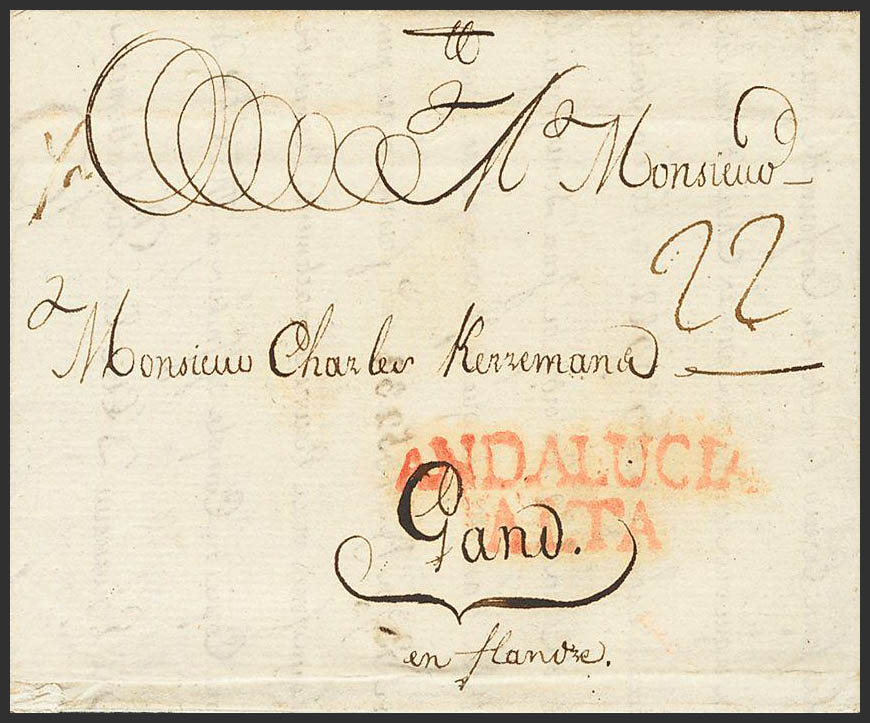 A Monsieur
22
Monsieur Charles Kerremans
ANDALUCIA
ALTA
Gand.
en flandre.